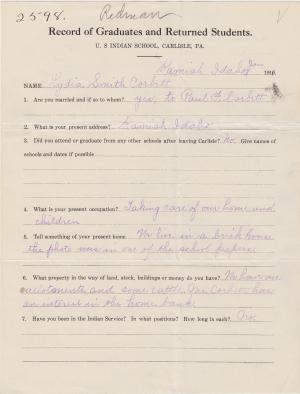 2598. Redman
Record of Graduates and Returned Students.
U. S INDIAN SCHOOL, CARLISLE, PA.
Kamiah Idaho Jan 1911
NAME Lydia Smith Corbett
1. Are you married and if so to whom? yes, to Paul F. Corbett
2. What is your present address? Kamiah Idaho
3. Did you attend or graduate from any other schools after leaving Carlisle? No. Give names of
schools and dates if possible
4. What is your present occupation? Taking care of our home and
children
5. Tell something of your present home We live in a brick house
the photo was in one of the school papers.
6. What property in the way of land, stock, buildings or money do you have? We have our
allotments and some cattle. Mr Corbett has
an interest in the home bank.
7. Have you been in the Indian Service? In what positions? How long in each? No.